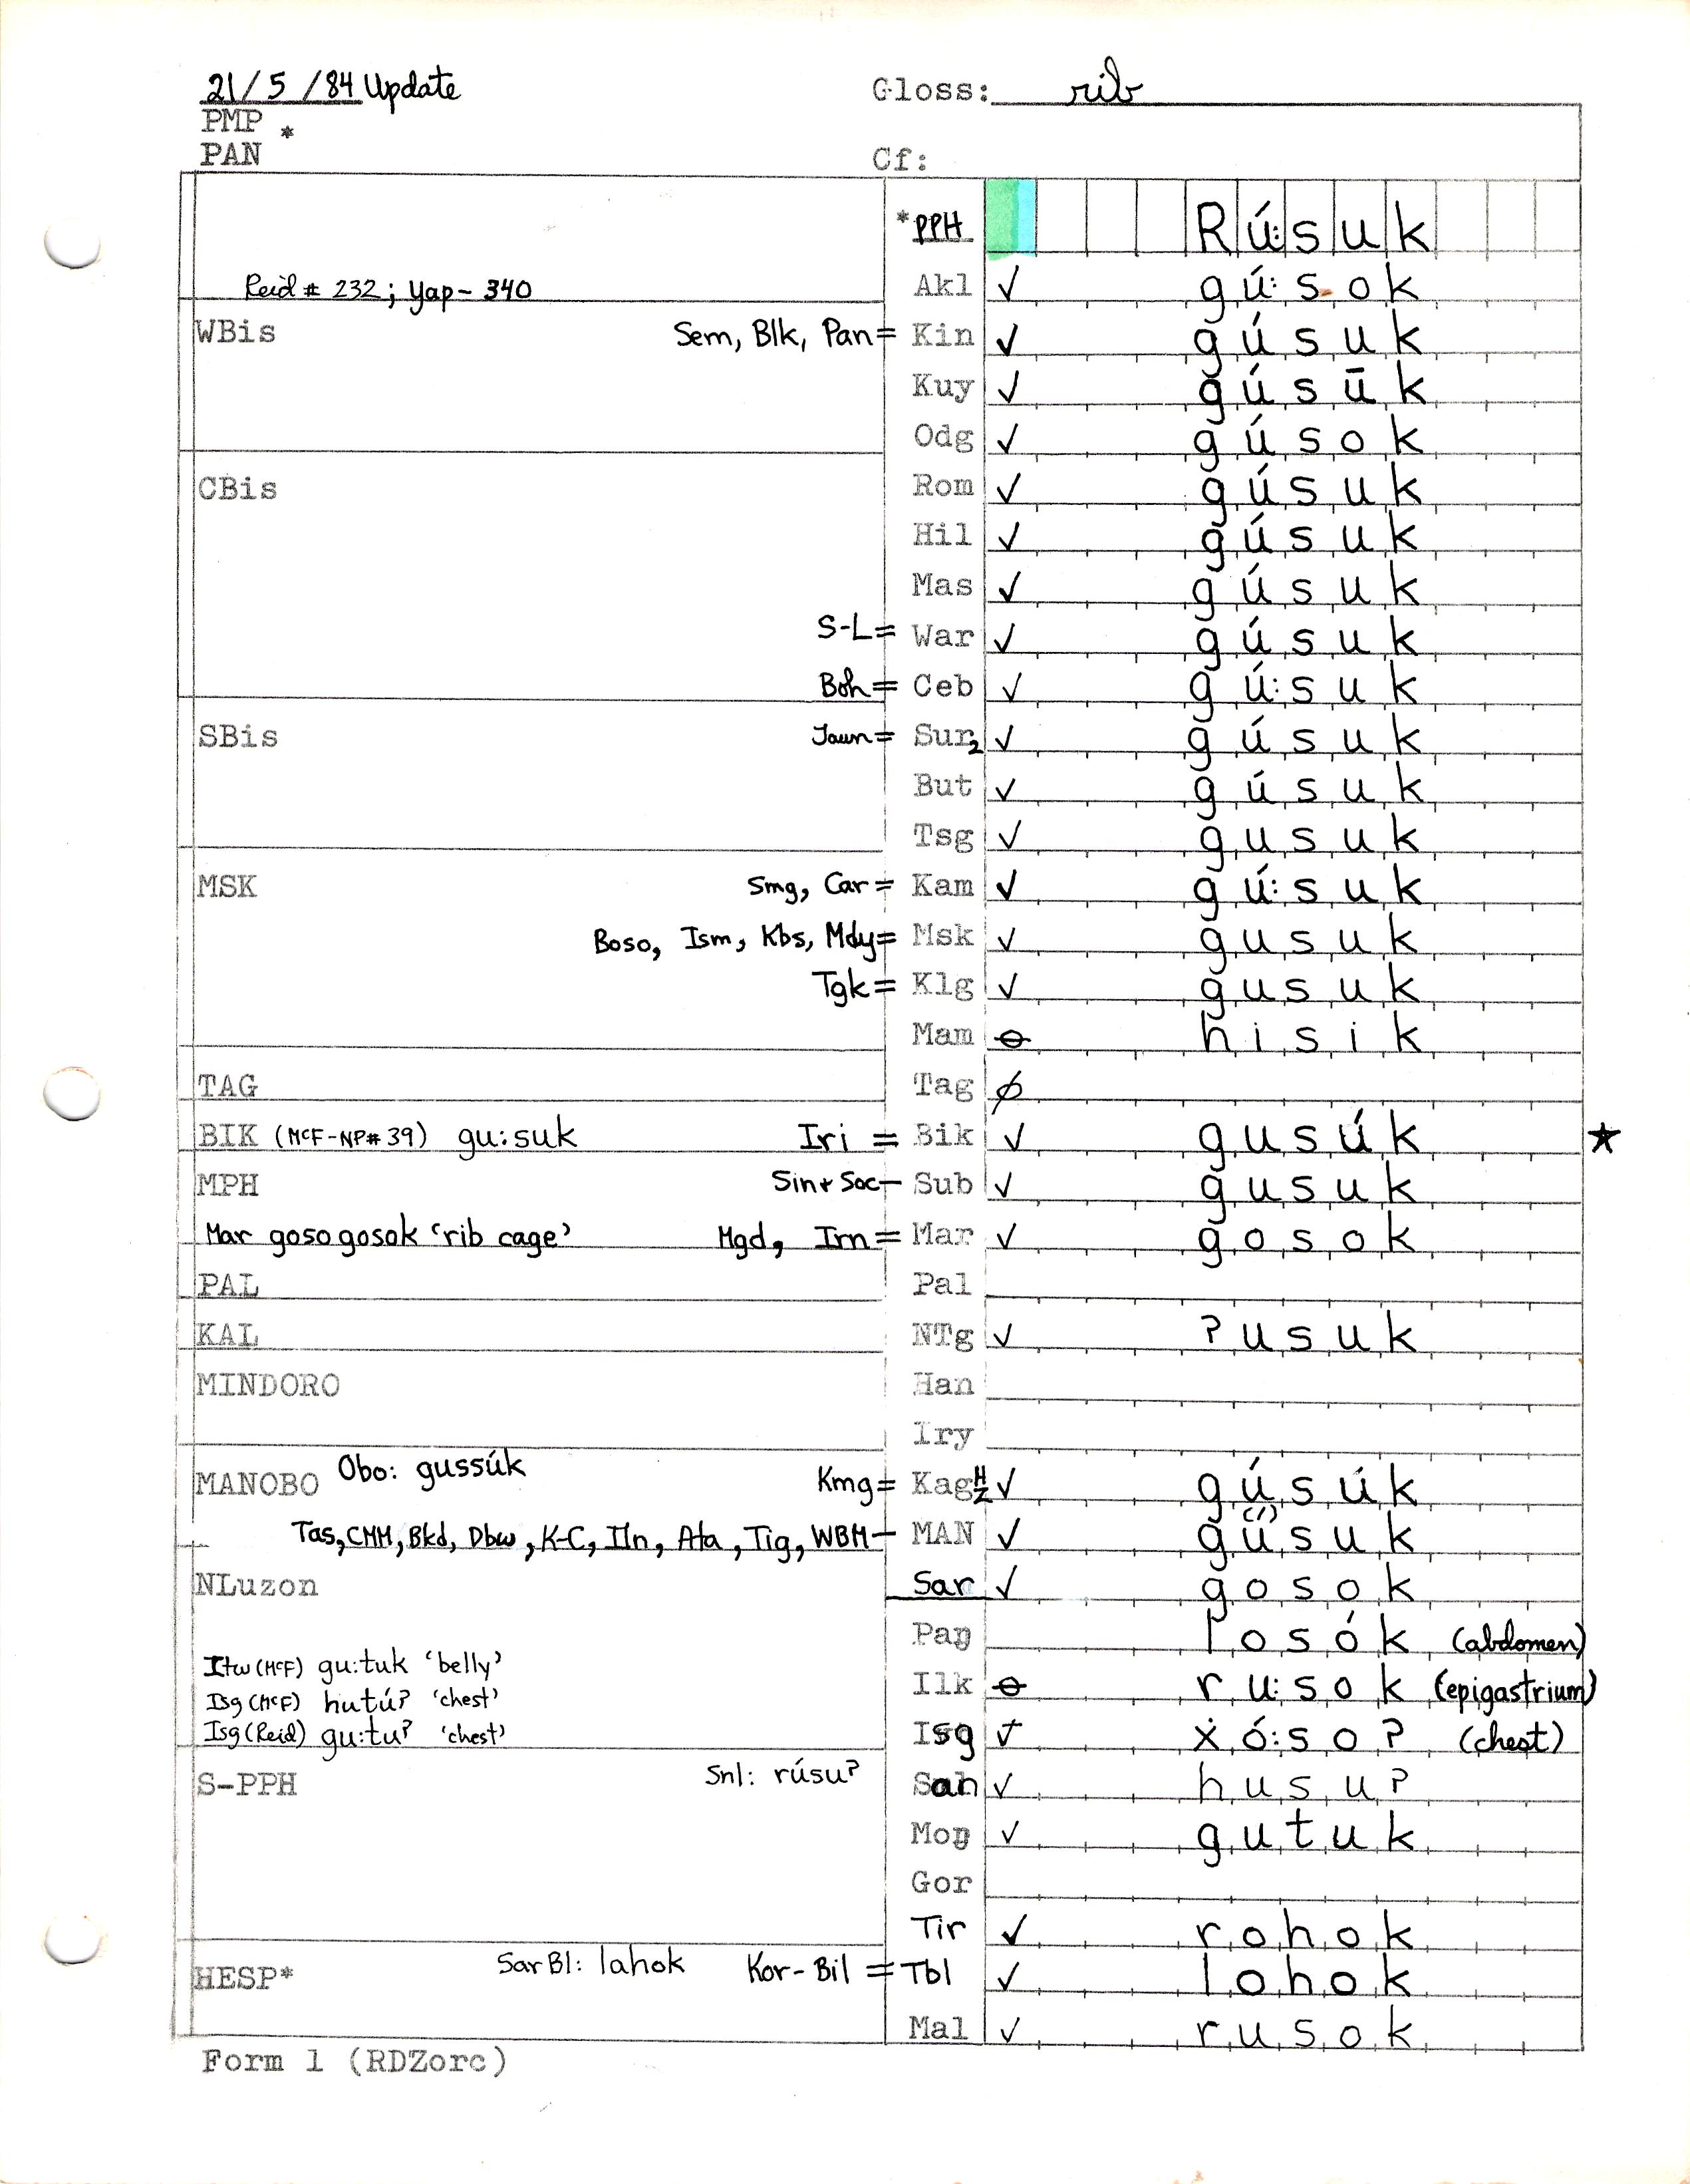 21/5/84 Update Gloss: rib
PMP *
PAN Cf:
*PPH Rú:suk
Reid # 232; Yap- 340 Akl ✓ gú:sok
WBis Sem, Blk, Pan= Kin ✓ gúsuk
Kuy ✓ gúsūk
Odg ✓ gúsok
CBis Rom ✓ gúsuk
Hil ✓ gúsuk
Mas ✓ gúsuk
S-L= War ✓ gúsuk
Boh= Ceb ✓ gú:suk
SBis Jaun= Sur2 ✓ gúsuk
But ✓ gúsuk
Tsg ✓ gusuk
MSK Smg, Car= Kam ✓ gú:suk
Boso, Ism, Kbs, Mdy= Msk ✓ gusuk
Tgk= Klg ✓ gusuk
Mam ⊖ hisik
TAG Tag ∅
BIK (McF-NP# 39) gu:suk Iri = Bik ✓ gusúk ★
MPH Sin+Soc- Sub ✓ gusuk
Mar gosogosok ‘rib cage’ Mgd, Irn= Mar ✓ gosok
PAL Pal
KAL NTg ✓ ʔusuk
MINDORO Han
Iry
MANOBO Obo: gussúk Kmg= Kag H/Z ✓ gúsúk
Tas, CMM, Bkd, Dbw, K-C, Iln, Ata, Tig, WBM- MAN ✓ gu(´)suk
NLuzon Sar ✓ gosok
Paŋ losók (abdomen)
Itw (McF) gu:tuk ‘belly’
Ilk ⊖ ru:sok (epigastrium)
Isg (McF) hutúʔ ‘chest’
Isg (Reid) gu:tuʔ ‘chest’ Isg ✓ ẋó:soʔ (chest)
S-PPH Snl: rúsuʔ San ✓ husuʔ
Moŋ ✓ gutuk
Gor
Tir ✓ rohok
HESP* SarBl: lahok Kor-Bil = Tbl ✓ lohok
Mal ✓ rusok
Form 1 (RDZorc)